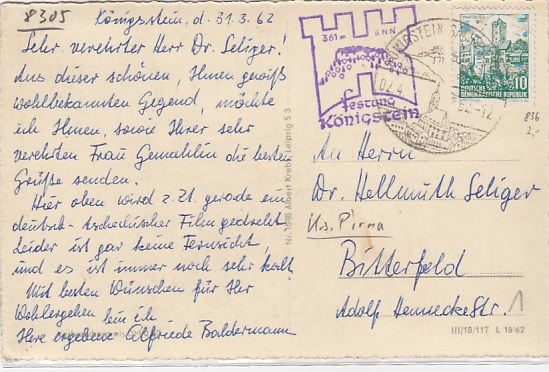 8305
Königsstein, d. 31.3.62
Sehr verehrter Herr Dr. Seliger!
Aus dieser schönen, Ihnen gewiß
wohlbekannten Gegend, möchte
ich Ihnen, sowie Ihrer sehr
verehrten Frau Gemahlin die besten
Grüße senden.
Hier oben wird z. Zt. gerade ein
deutsch-tschechischer Film gedreht
Leider ist gar keine Fernsicht,
und es ist immer noch sehr kalt
Mit besten Wünschen für Ihr
Wohlergehen bin ich
Ihre ergebene Elfriede Baldermann
Albert Krebs, Leipzig S 3
361 m ü.N.N
Festung
Königstein
DEUTSCHE
DEMOKRATISCHE REPUBLIK
10
836
An Herrn
Dr. Hellmuth Seliger
Krs. Pirna
Bitterfeld
Adolf Henneckestr. 1
III/18/117 L 18/62